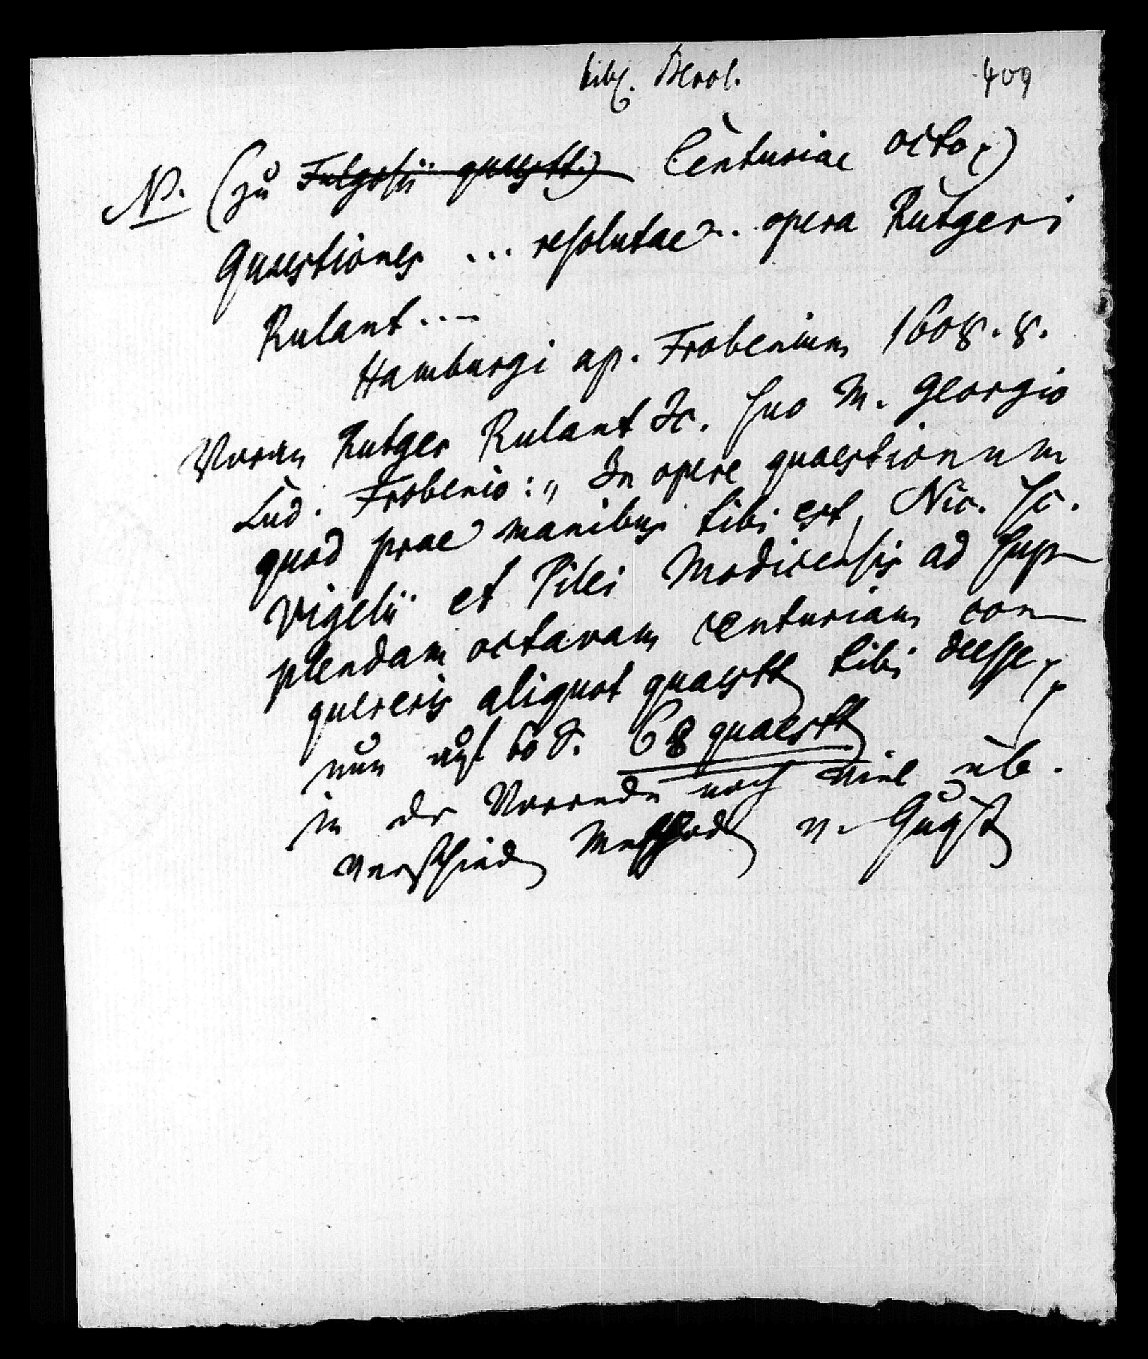 bibl. Berol. 409
N. (zu Fulgosii quaestt.) Centuriae octo)
Quaestiones ... resolutae ... opera Rutgeri
Rulant ....
Hamburgi ap. Frobenium 1608. 8.
Voran Rutger Rulant Jc. suo M. Georgio
Lud. Frobenio: „ In opere quaestionum
quod prae manibus tibi est, Nic. sc.
Vigelii et Pilei Modicensis ad sup-
plendam octavam centuriam con-
quereris aliquot quaestt tibi deesse,
nun auf 60 S. 68 quaestt
in der Vorrede noch viel üb.
verschied Method v.